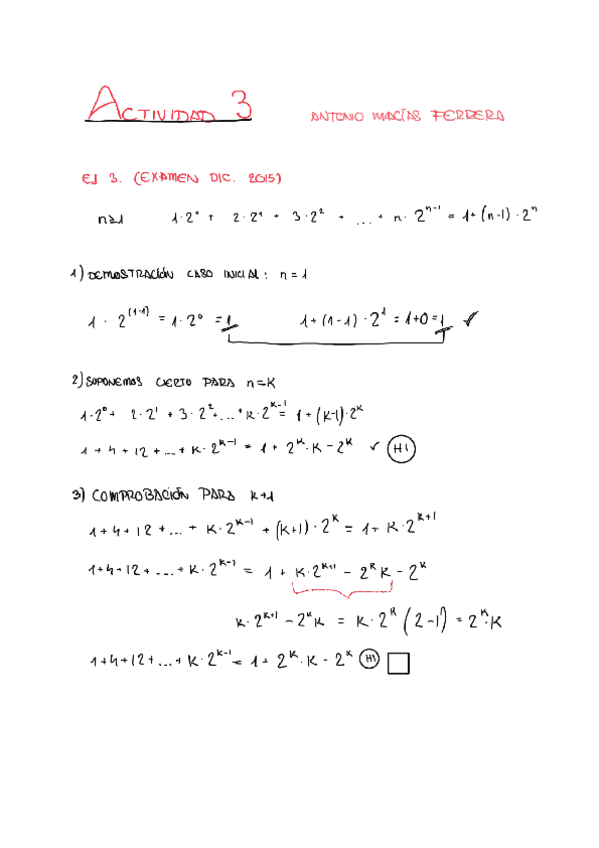 ACTIVIDAD 3 ANTONIO MACÍAS FERRERA
EJ 3. (EXAMEN DIC. 2015)
n≥1 1·2⁰ + 2·2¹ + 3·2² + ... + n·2ⁿ⁻¹ = 1+(n-1)·2ⁿ
1) DEMOSTRACIÓN CASO INICIAL: n=1
1·2⁽¹⁻¹⁾ = 1·2⁰ = 1 1+(1-1)·2¹ = 1+0 = 1 ✓
2) SUPONEMOS CIERTO PARA n=K
1·2⁰+ 2·2¹ + 3·2²+...+k·2ᴷ⁻¹ = 1+(k-1)·2ᴷ
1+4+12+...+k·2ᴷ⁻¹ = 1+2ᴷ·K-2ᴷ ✓ HI
3) COMPROBACIÓN PARA K+1
1+4+12+...+ K·2ᴷ⁻¹ + (K+1)·2ᴷ = 1+ K·2ᴷ⁺¹
1+4+12+...+K·2ᴷ⁻¹ = 1+ K·2ᴷ⁺¹ - 2ᴷK - 2ᴷ
K·2ᴷ⁺¹ - 2ᴷK = K·2ᴷ(2-1) = 2ᴷ·K
1+4+12+...+K·2ᴷ⁻¹ = 1+ 2ᴷ·K - 2ᴷ HI □